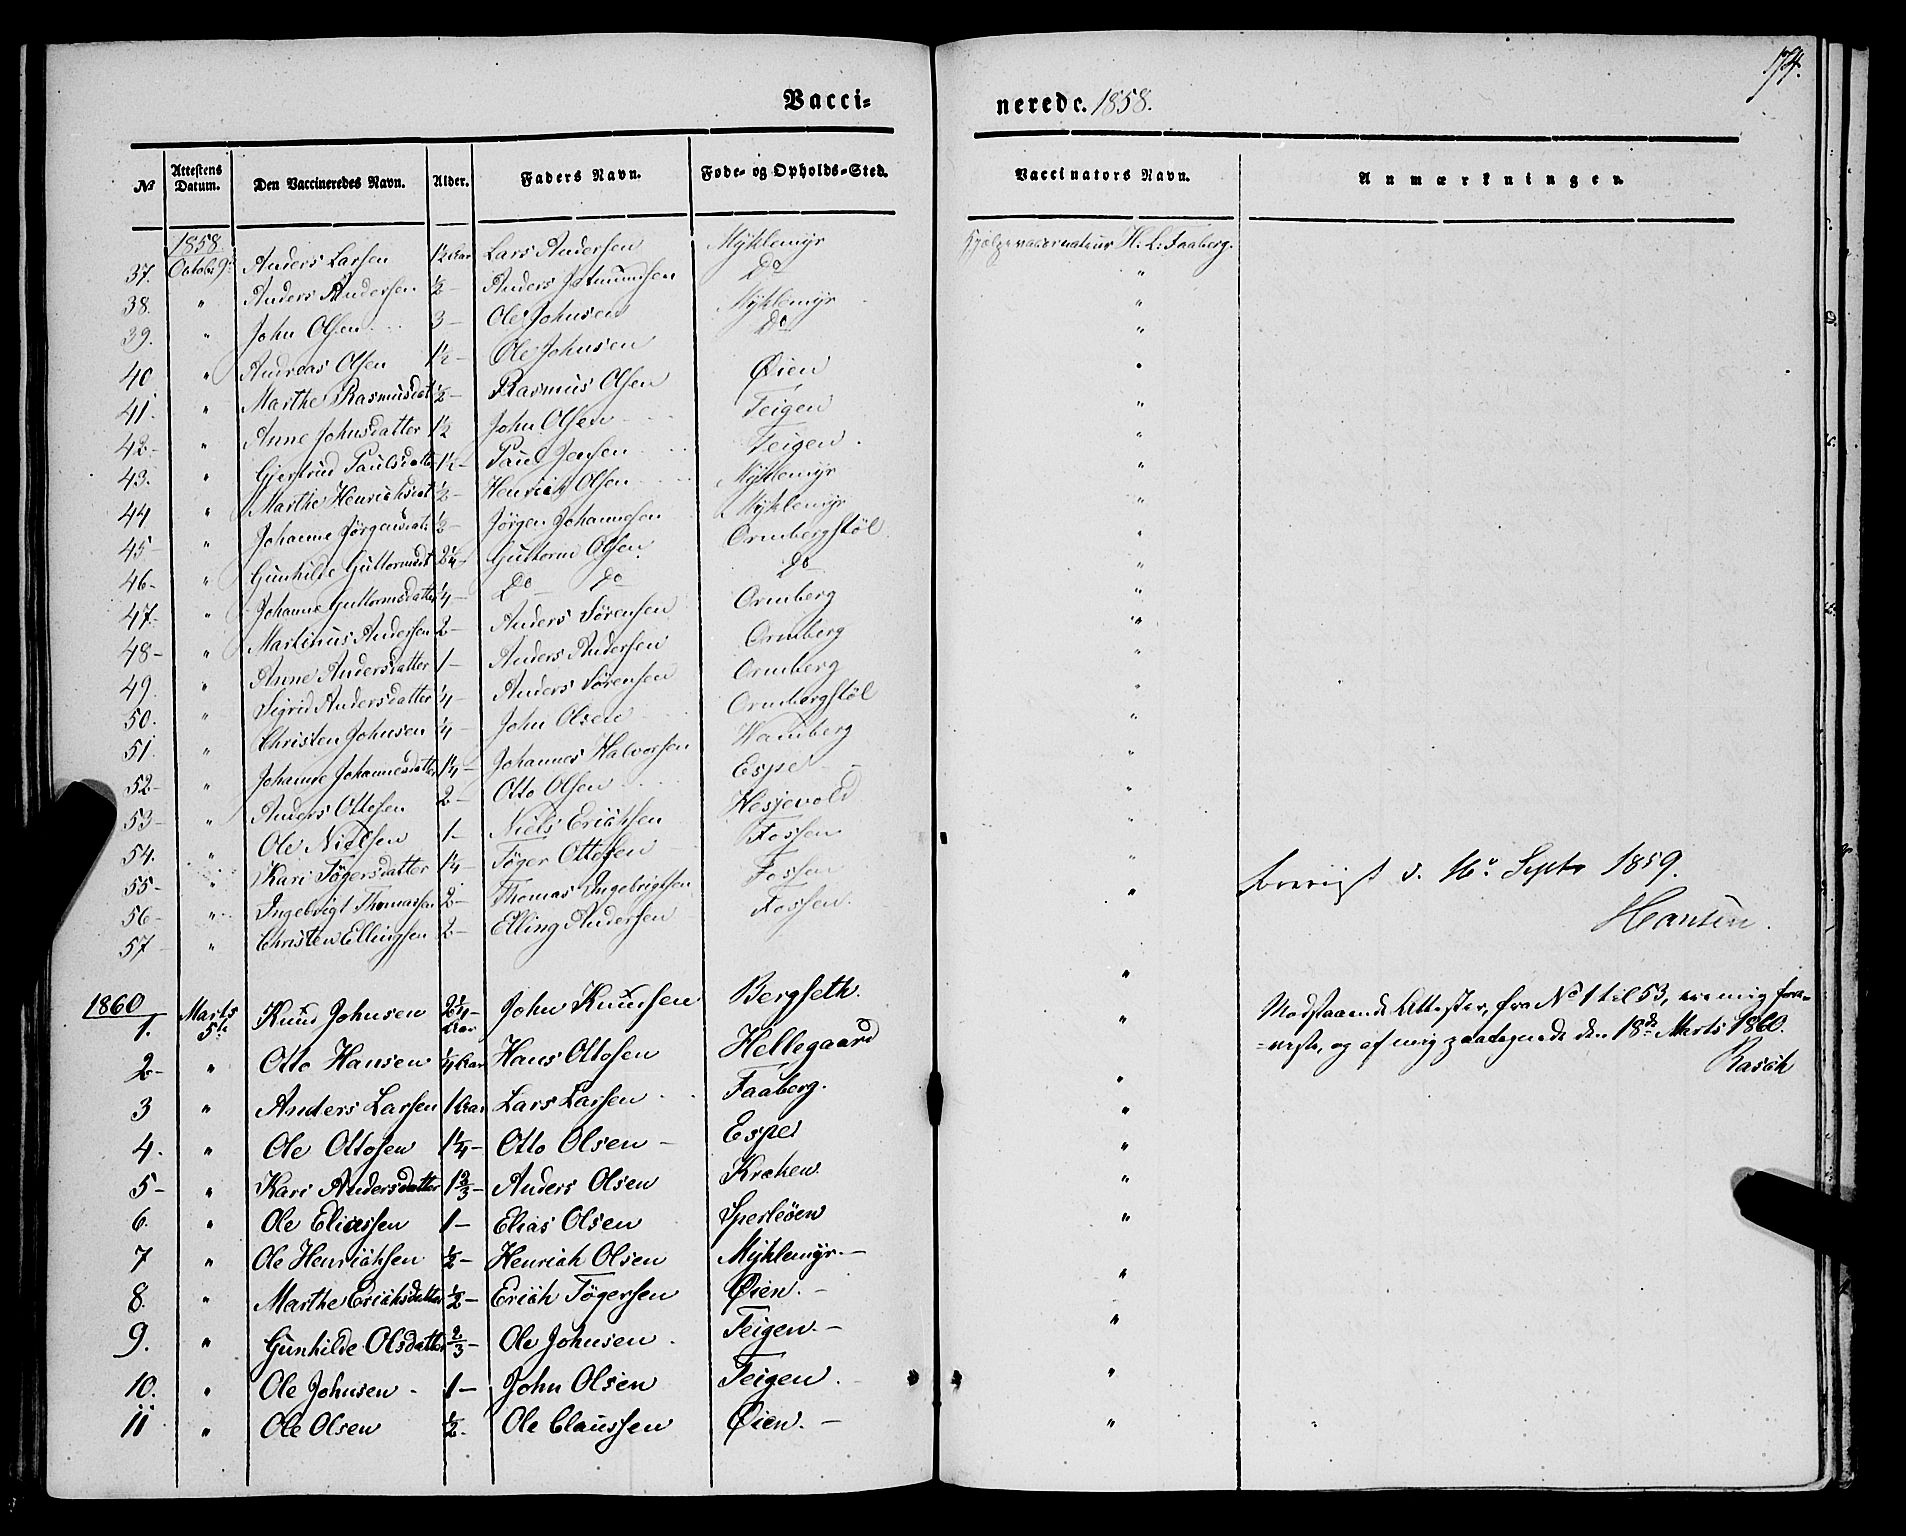 174.
Vacci-
nerede. 1858.
№ Attestens Datum. Den Vaccineredes Navn. Alder. Faders Navn. Føde- og Opholds-Sted. Vaccinators Navn. Anmærkninger.
1858.
37. October 9de Anders Larsen 1½ Aar Lars Andersen Myklemyr Hjelpevaccinateur H. L. Faaberg.
38. " Anders Andersen ½ – Anders Do "
39. " John Olsen 3 – Ole Johnsen Myklemyr "
40 " Andreas Olsen 1½ – Ole Johnsen Do "
41. " Marthe Rasmusdat ½ – Rasmus Olsen Øien "
42 – " Anne Johnsdatter 1½ John Olsen Teigen "
43. " Gjertrud Paulsdatter 1½ – Paul Jensen Teigen. "
44 " Marthe Henrichsdat ½ – Henrich Olsen Myklemyr "
45 – " Johanne Jørgensdat ½ – Jørgen Johannesen Myklemyr "
46 – " Gunhilde Guttormsdt 2¼ – Guttorm Olsen Ormbergstøl "
47. – " Johanne Guttormsdatter ¼ – Do – do do "
48 – " Martinus Andersen 2 – Anders Sørensen Ormberg "
49. " Anne Andersdatter 1 – Anders Andersen Ormberg "
50. " Sigrid Andersdatter ¼ – Anders Sørensen Ormberg "
51. " Christen Johnsen ¼ – John Olsen Ormbergstøl "
52 – " Johanne Johannesdatter 1¼ – Johannes Halvorsen Hamberg "
53 – " Anders Ottosen 2 – Otto Olsen Espe – "
54. " Ole Nielsen 1 – Niels Erichsen Hesjevold "
55 – " Kari Tøgersdatter 1¼ – Tøger Ottosen Fossen "
56 – " Ingebrigt Thomassen 2 – Thomas Ingebrigtsen Fossen "
57 – " Christen Ellingsen 2 – Elling Andersen Fossen. "
d. 16de Septr 1859.
Hansen.
1860
1. Marts 5te Knud Johnsen 2¼ – Aar John Knudsen Bergseth. "
2 – " Otto Hansen ¼ Aar Hans Ottosen Hellegaard "
3 " Anders Larsen 1 Aar Lars Larsen Faaberg. "
4. " Ole Ottosen 1¼ – Otto Olsen – Espe "
5 – " Kari Andersdatter 1⅔ – Anders Olsen Kroken "
6. " Ole Eliassen 1 – Elias Olsen Sperleøen "
7 " Ole Henrichsen ½ – Henrich Olsen Myklemyr. – "
8. " Marthe Erichsdatter ½ – Erich Tøgersen Øien. – "
9. " Gunhilde Olsdatter ⅔ – Ole Johnsen. Teigen. – "
10. " Ole Johnsen – 1 – John Olsen Teigen. "
11 " Ole Olsen ½ – Ole Claussen Øien. – "
Modstaaende Attester, fra No 1 til 53, ere mig fore-
-viste, og af mig paategnede den 18de Marts 1860.
Rasch